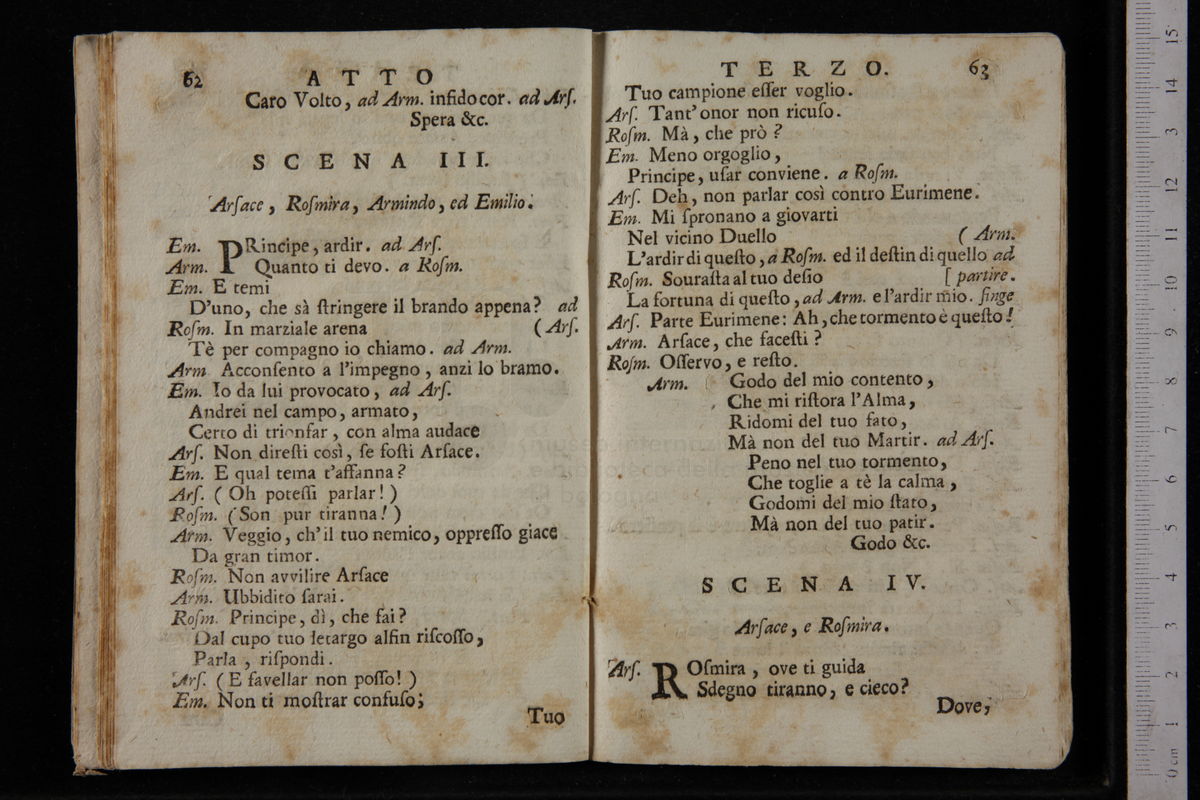 62 ATTO
Caro Volto, ad Arm. infido cor. ad Arſ.
Spera &c.
SCENA III.
Arſace, Roſmira, Armindo, ed Emilio.
Em. PRincipe, ardir. ad Arſ.
Arm. Quanto ti devo. a Roſm.
Em. E temi
D'uno, che sà ſtringere il brando appena? ad
Roſm. In marziale arena (Arſ.
Tè per compagno io chiamo. ad Arm.
Arm Acconſento a l'impegno, anzi lo bramo.
Em. Io da lui provocato, ad Arſ.
Andrei nel campo, armato,
Certo di trionfar, con alma audace
Arſ. Non direſti così, ſe foſti Arſace.
Em. E qual tema t'affanna?
Arſ. (Oh poteſſi parlar!)
Roſm. (Son pur tiranna!)
Arm. Veggio, ch'il tuo nemico, oppreſſo giace
Da gran timor.
Roſm. Non avvilire Arſace
Arm. Ubbidito ſarai.
Roſm. Principe, dì, che fai?
Dal cupo tuo letargo alfin riſcoſſo,
Parla, riſpondi.
Arſ. (E favellar non poſſo!)
Em. Non ti moſtrar confuſo;
Tuo
TERZO. 63
Tuo campione eſſer voglio.
Arſ. Tant'onor non ricuſo.
Roſm. Mà, che prò?
Em. Meno orgoglio,
Principe, uſar conviene. a Roſm.
Arſ. Deh, non parlar così contro Eurimene.
Em. Mi ſpronano a giovarti
Nel vicino Duello (Arm.
L'ardir di queſto, a Roſm. ed il deſtin di quello ad
Roſm. Souraſta al tuo deſio [partire.
La fortuna di queſto, ad Arm. e l'ardir mio. finge
Arſ. Parte Eurimene: Ah, che tormento è queſto!
Arm. Arſace, che faceſti?
Roſm. Oſſervo, e reſto.
Arm. Godo del mio contento,
Che mi riſtora l'Alma,
Ridomi del tuo fato,
Mà non del tuo Martir. ad Arſ.
Peno nel tuo tormento,
Che toglie a tè la calma,
Godomi del mio ſtato,
Mà non del tuo patir.
Godo &c.
SCENA IV.
Arſace, e Roſmira.
Arſ. ROſmira, ove ti guida
Sdegno tiranno, e cieco?
Dove,
0 cm 1 2 3 4 5 6 7 8 9 10 11 12 13 14 15